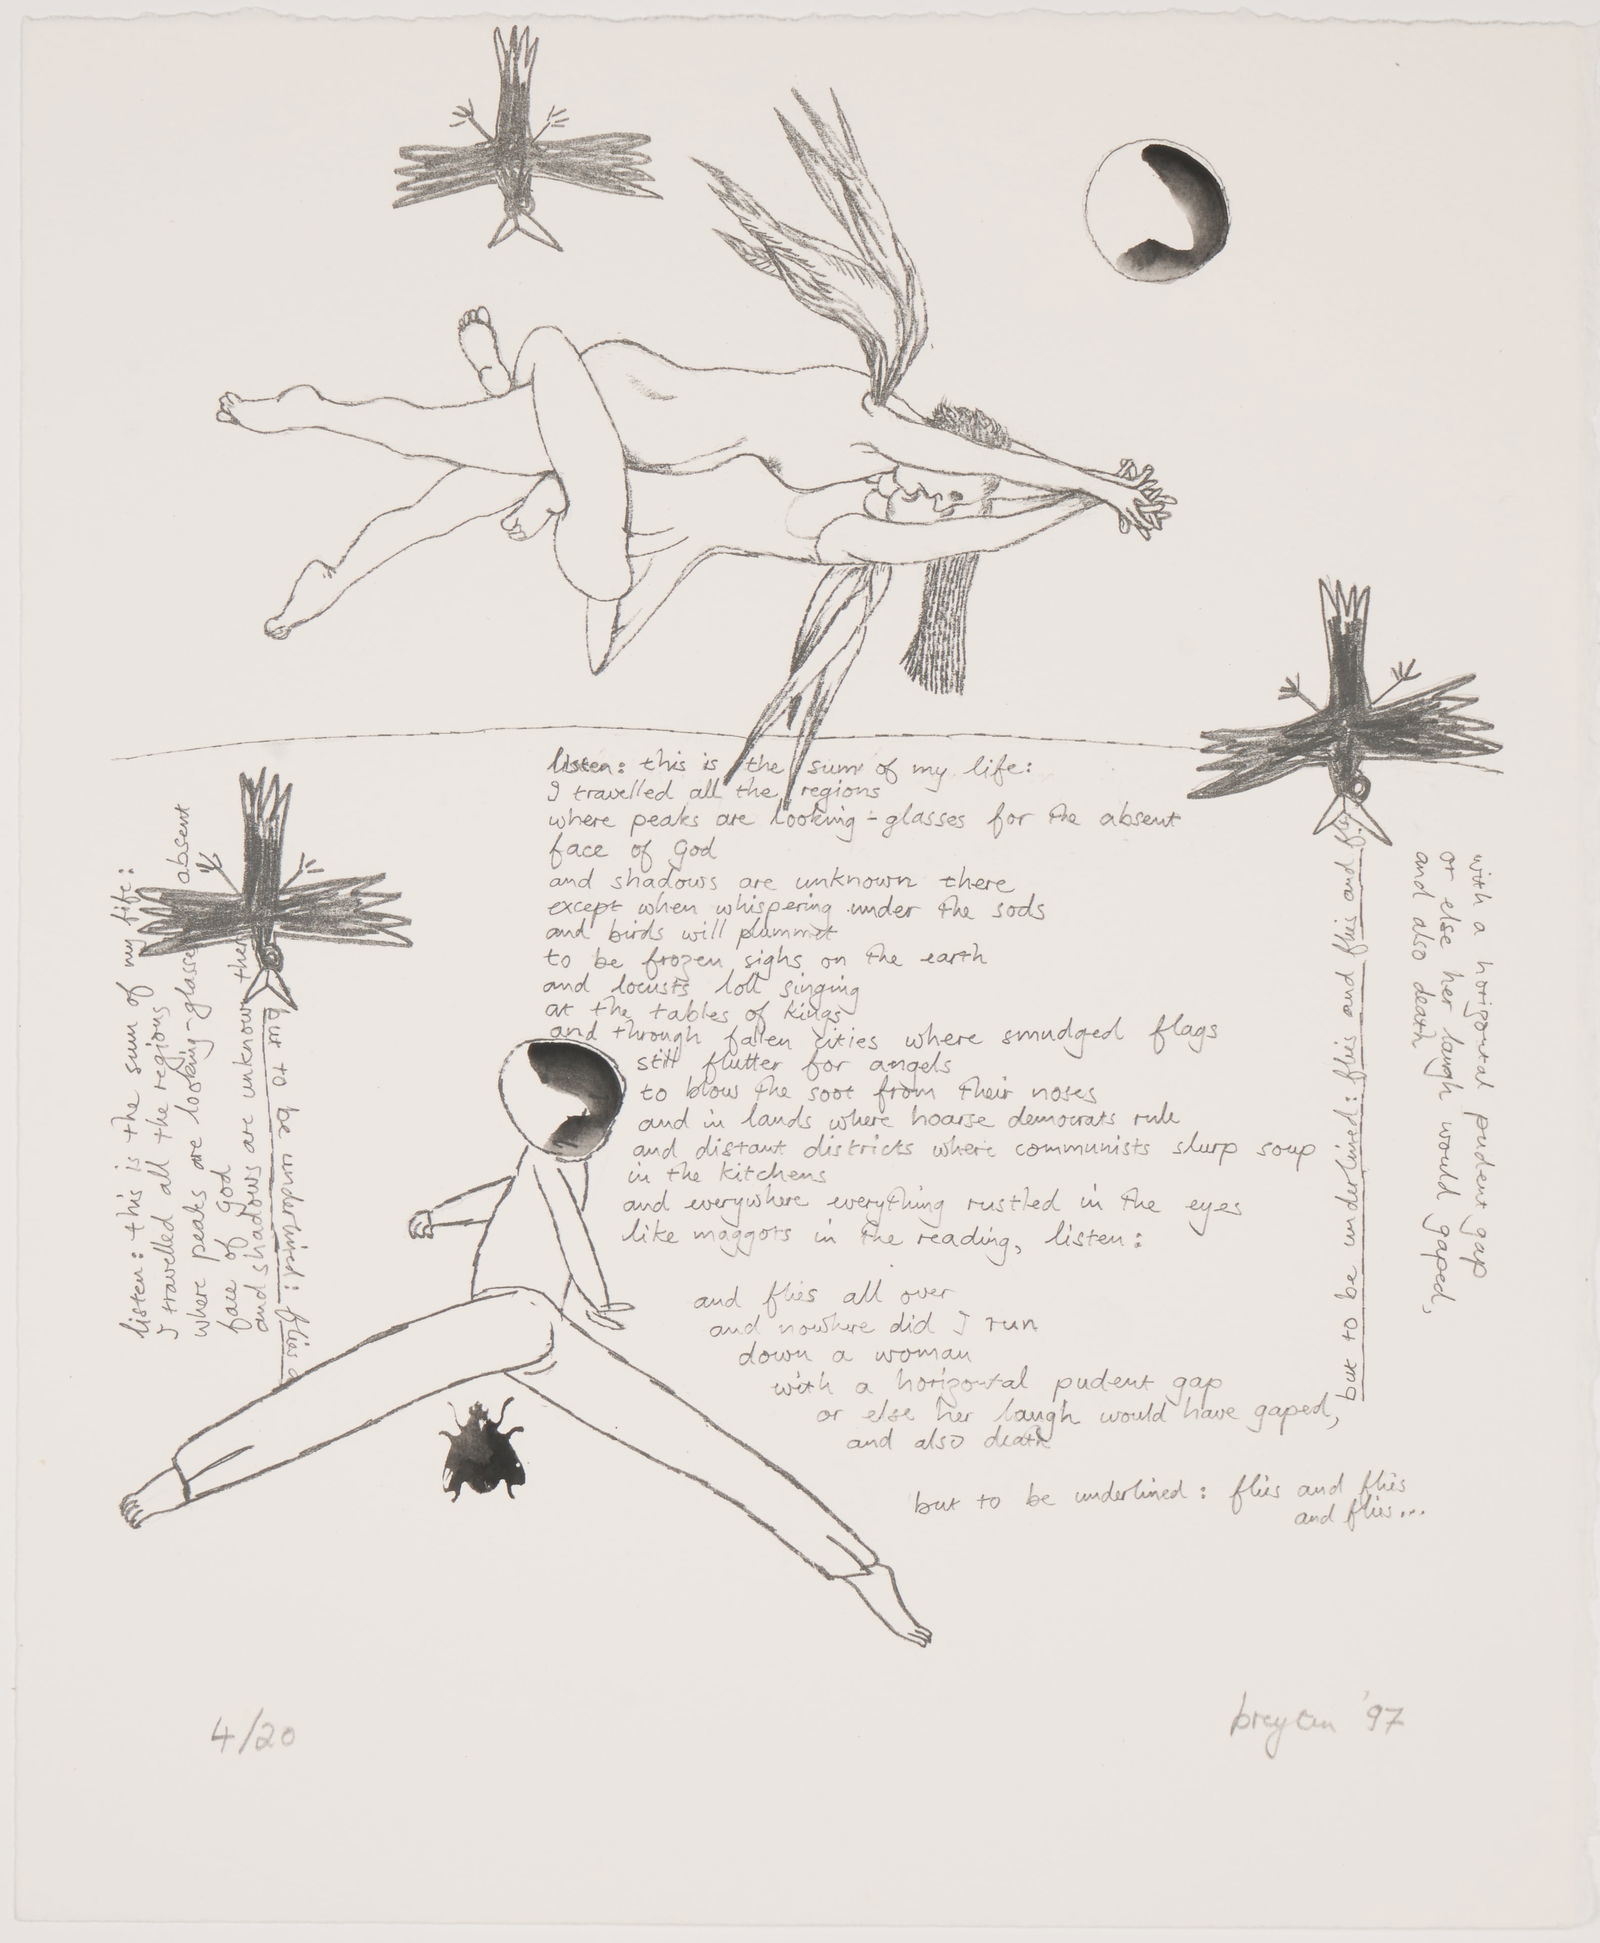 listen: this is the sum of my life:
I travelled all the regions
where peaks are looking-glasses for the absent
face of God
and shadows are unknown there
except when whispering under the sods
and birds will plummet
to be frozen sighs on the earth
and locusts loll singing
at the tables of kings
and through fallen cities where smudged flags
still flutter for angels
to blow the soot from their noses
and in lands where hoarse democrats rule
and distant districts where communists slurp soup
in the kitchens
and everywhere everything rustled in the eyes
like maggots in the reading, listen:
and flies all over
and nowhere did I run
down a woman
with a horizontal pudent gap
or else her laugh would have gaped,
and also death
but to be underlined: flies and flies
and flies...
listen: this is the sum of my life:
I travelled all the regions
where peaks are looking-glasses absent
face of God
and shadows are unknown ther
but to be underlined: flies
but to be underlined: flies and flies and fl
and also death
or else her laugh would gaped,
with a horizontal pudent gap
4/20
breyten '97